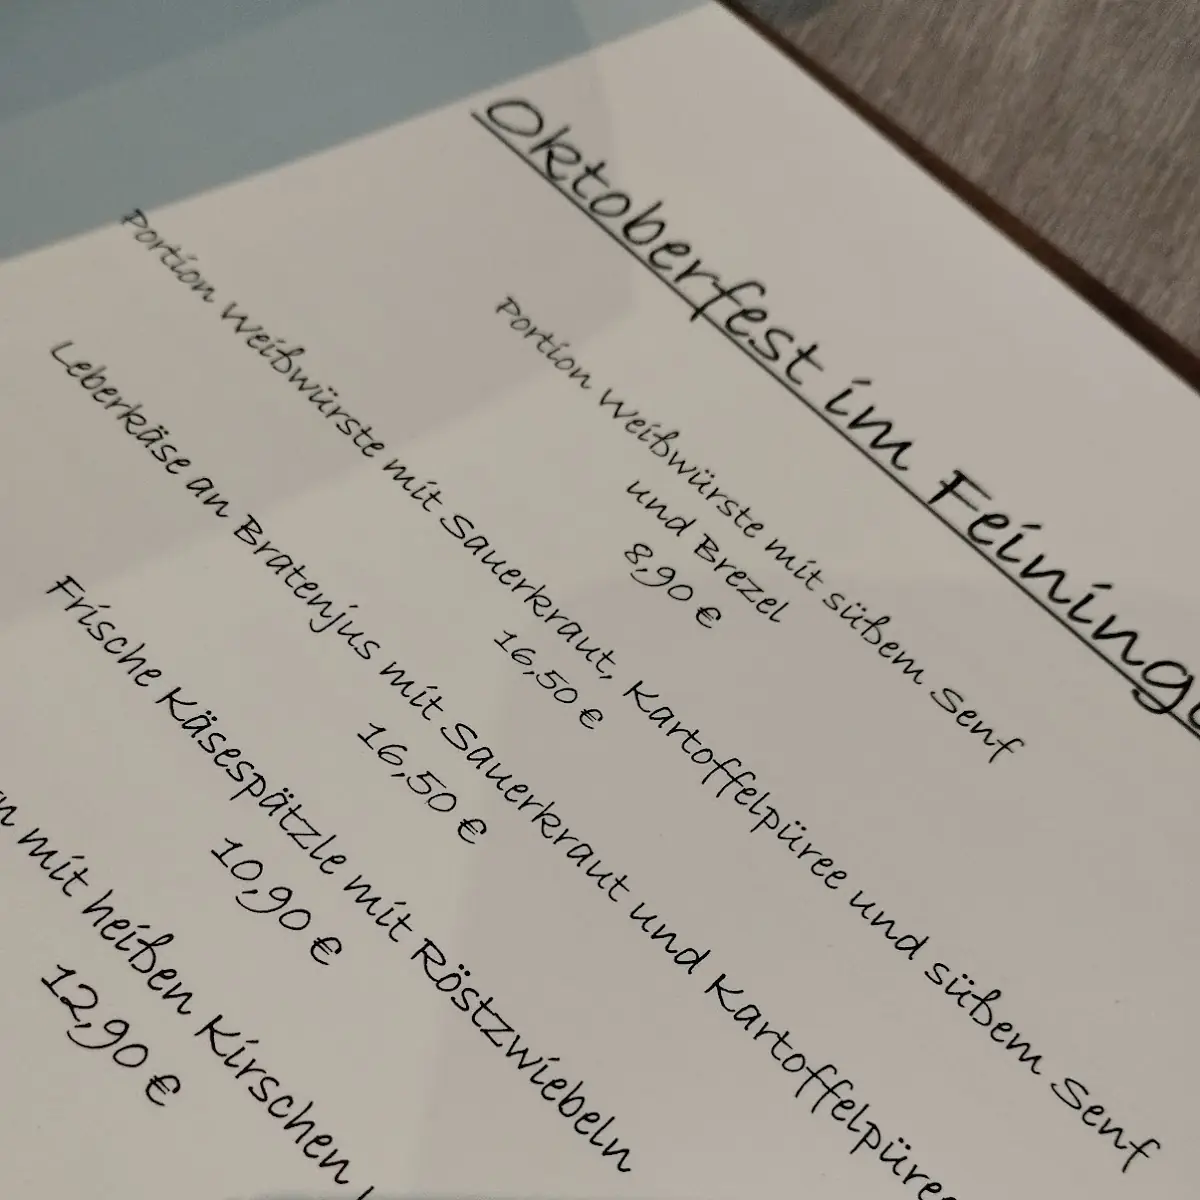 Oktoberfest im Feining
Portion Weißwürste mit süßem Senf
und Brezel
8,90 €
Portion Weißwürste mit Sauerkraut, Kartoffelpüree und süßem Senf
16,50 €
Leberkäse an Bratenjus mit Sauerkraut und Kartoffelpüree
16,50 €
Frische Käsespätzle mit Röstzwiebeln
10,90 €
mit heißen Kirschen
12,90 €